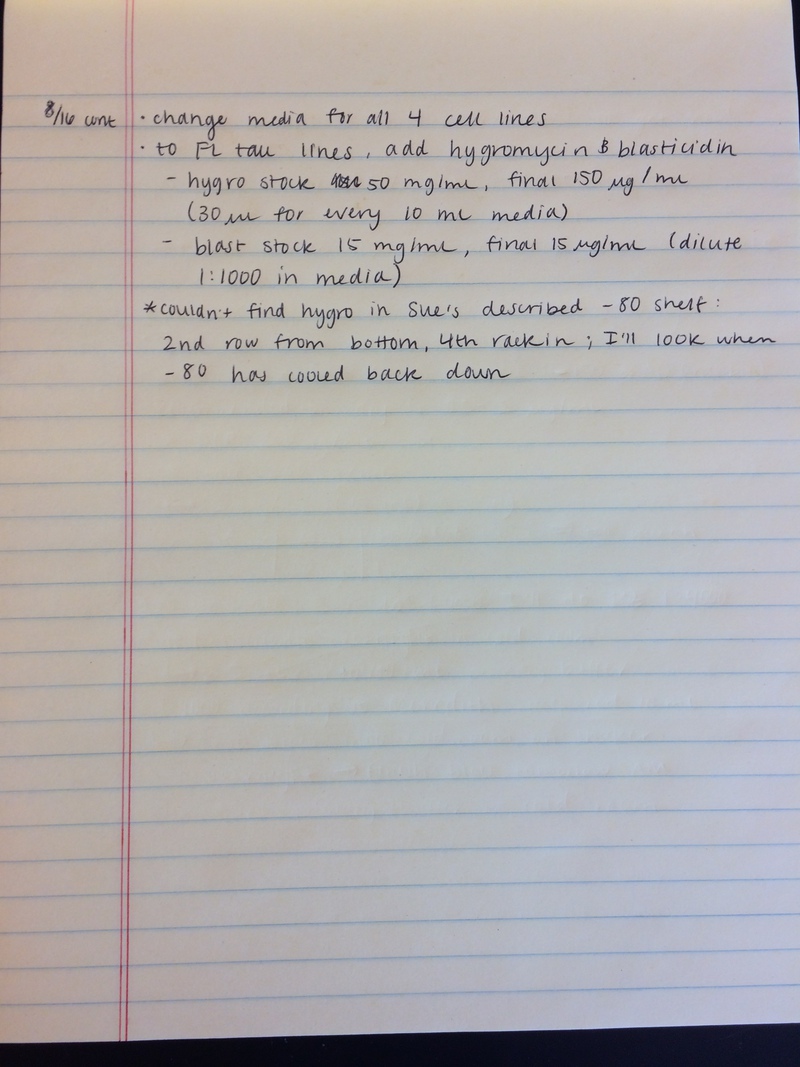 8/16 cont · change media for all 4 cell lines
· to FL tau lines, add hygromycin & blasticidin
- hygro stock 50 mg/mL, final 150 µg/mL
(30 µL for every 10 mL media)
- blast stock 15 mg/mL, final 15 µg/mL (dilute
1:1000 in media)
*couldn't find hygro in Sue's described -80 shelf:
2nd row from bottom, 4th rack in; I'll look when
-80 has cooled back down